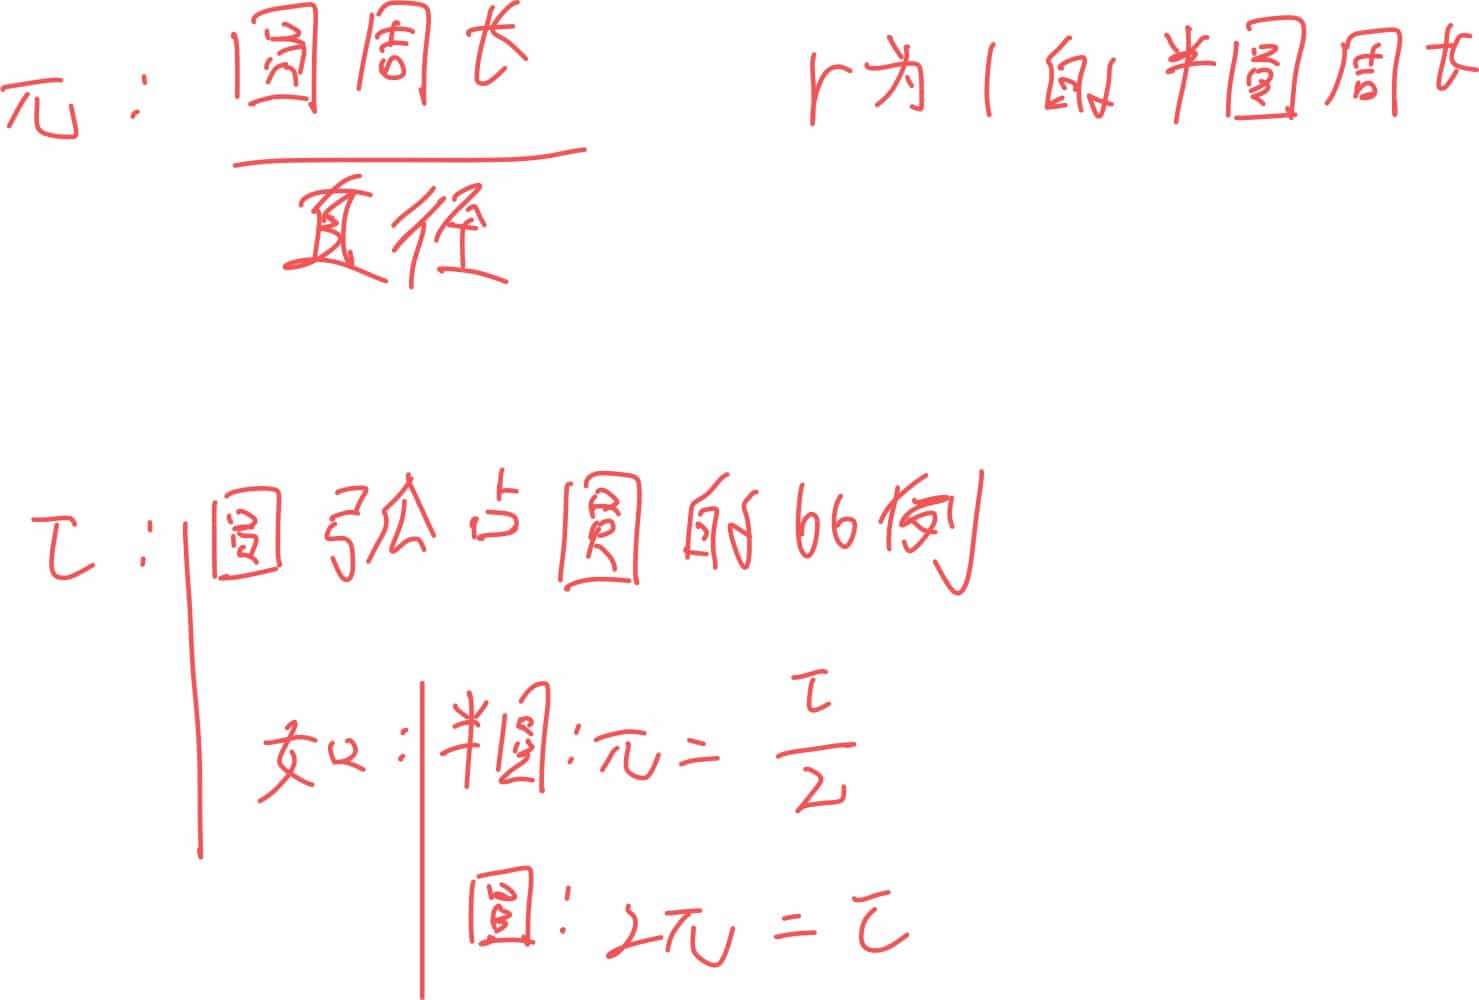 π: 圆周长 r为1的半圆周长
直径
τ: 圆弧占圆的比例
如: 半圆: π = τ
2
圆: 2π = τ